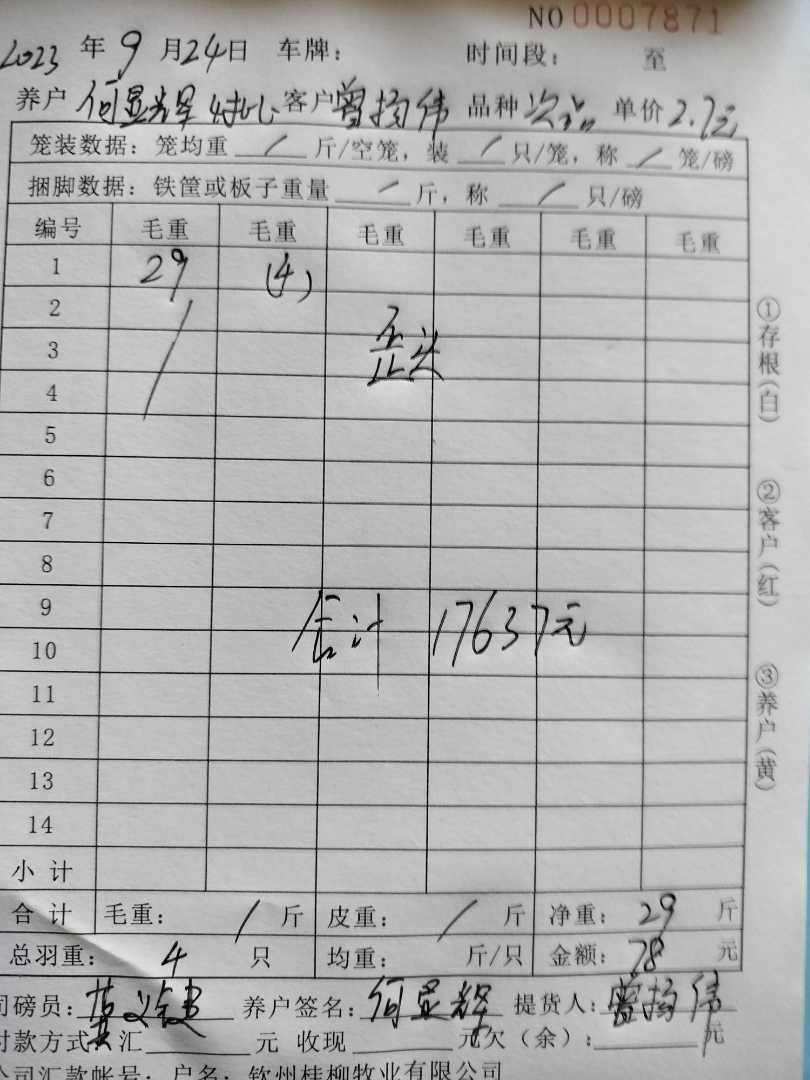 NO 0007871
2023 年 9 月 24 日 车牌: 时间段: 至
养户 何显辉 客户 曾扬伟 品种 次品 单价 2.7元
笼装数据: 笼均重 / 斤/空笼, 装 / 只/笼, 称 / 笼/磅
捆脚数据: 铁筐或板子重量 / 斤, 称 / 只/磅
编号 毛重 毛重 毛重 毛重 毛重 毛重
1 29 (4)
2
3 歪头
4
5
6
7
8
9
10 合计 17637元
11
12
13
14
小 计
合 计 毛重: / 斤 皮重: / 斤 净重: 29 斤
总羽重: 4 只 均重: 斤/只 金额: 78 元
司磅员: 养户签名: 何显辉 提货人: 曾扬伟
付款方式 汇 元 收现 元欠（余）: 元
公司汇款帐号: 户名: 钦州桂柳牧业有限公司
①存根(白)
②客户(红)
③养户(黄)